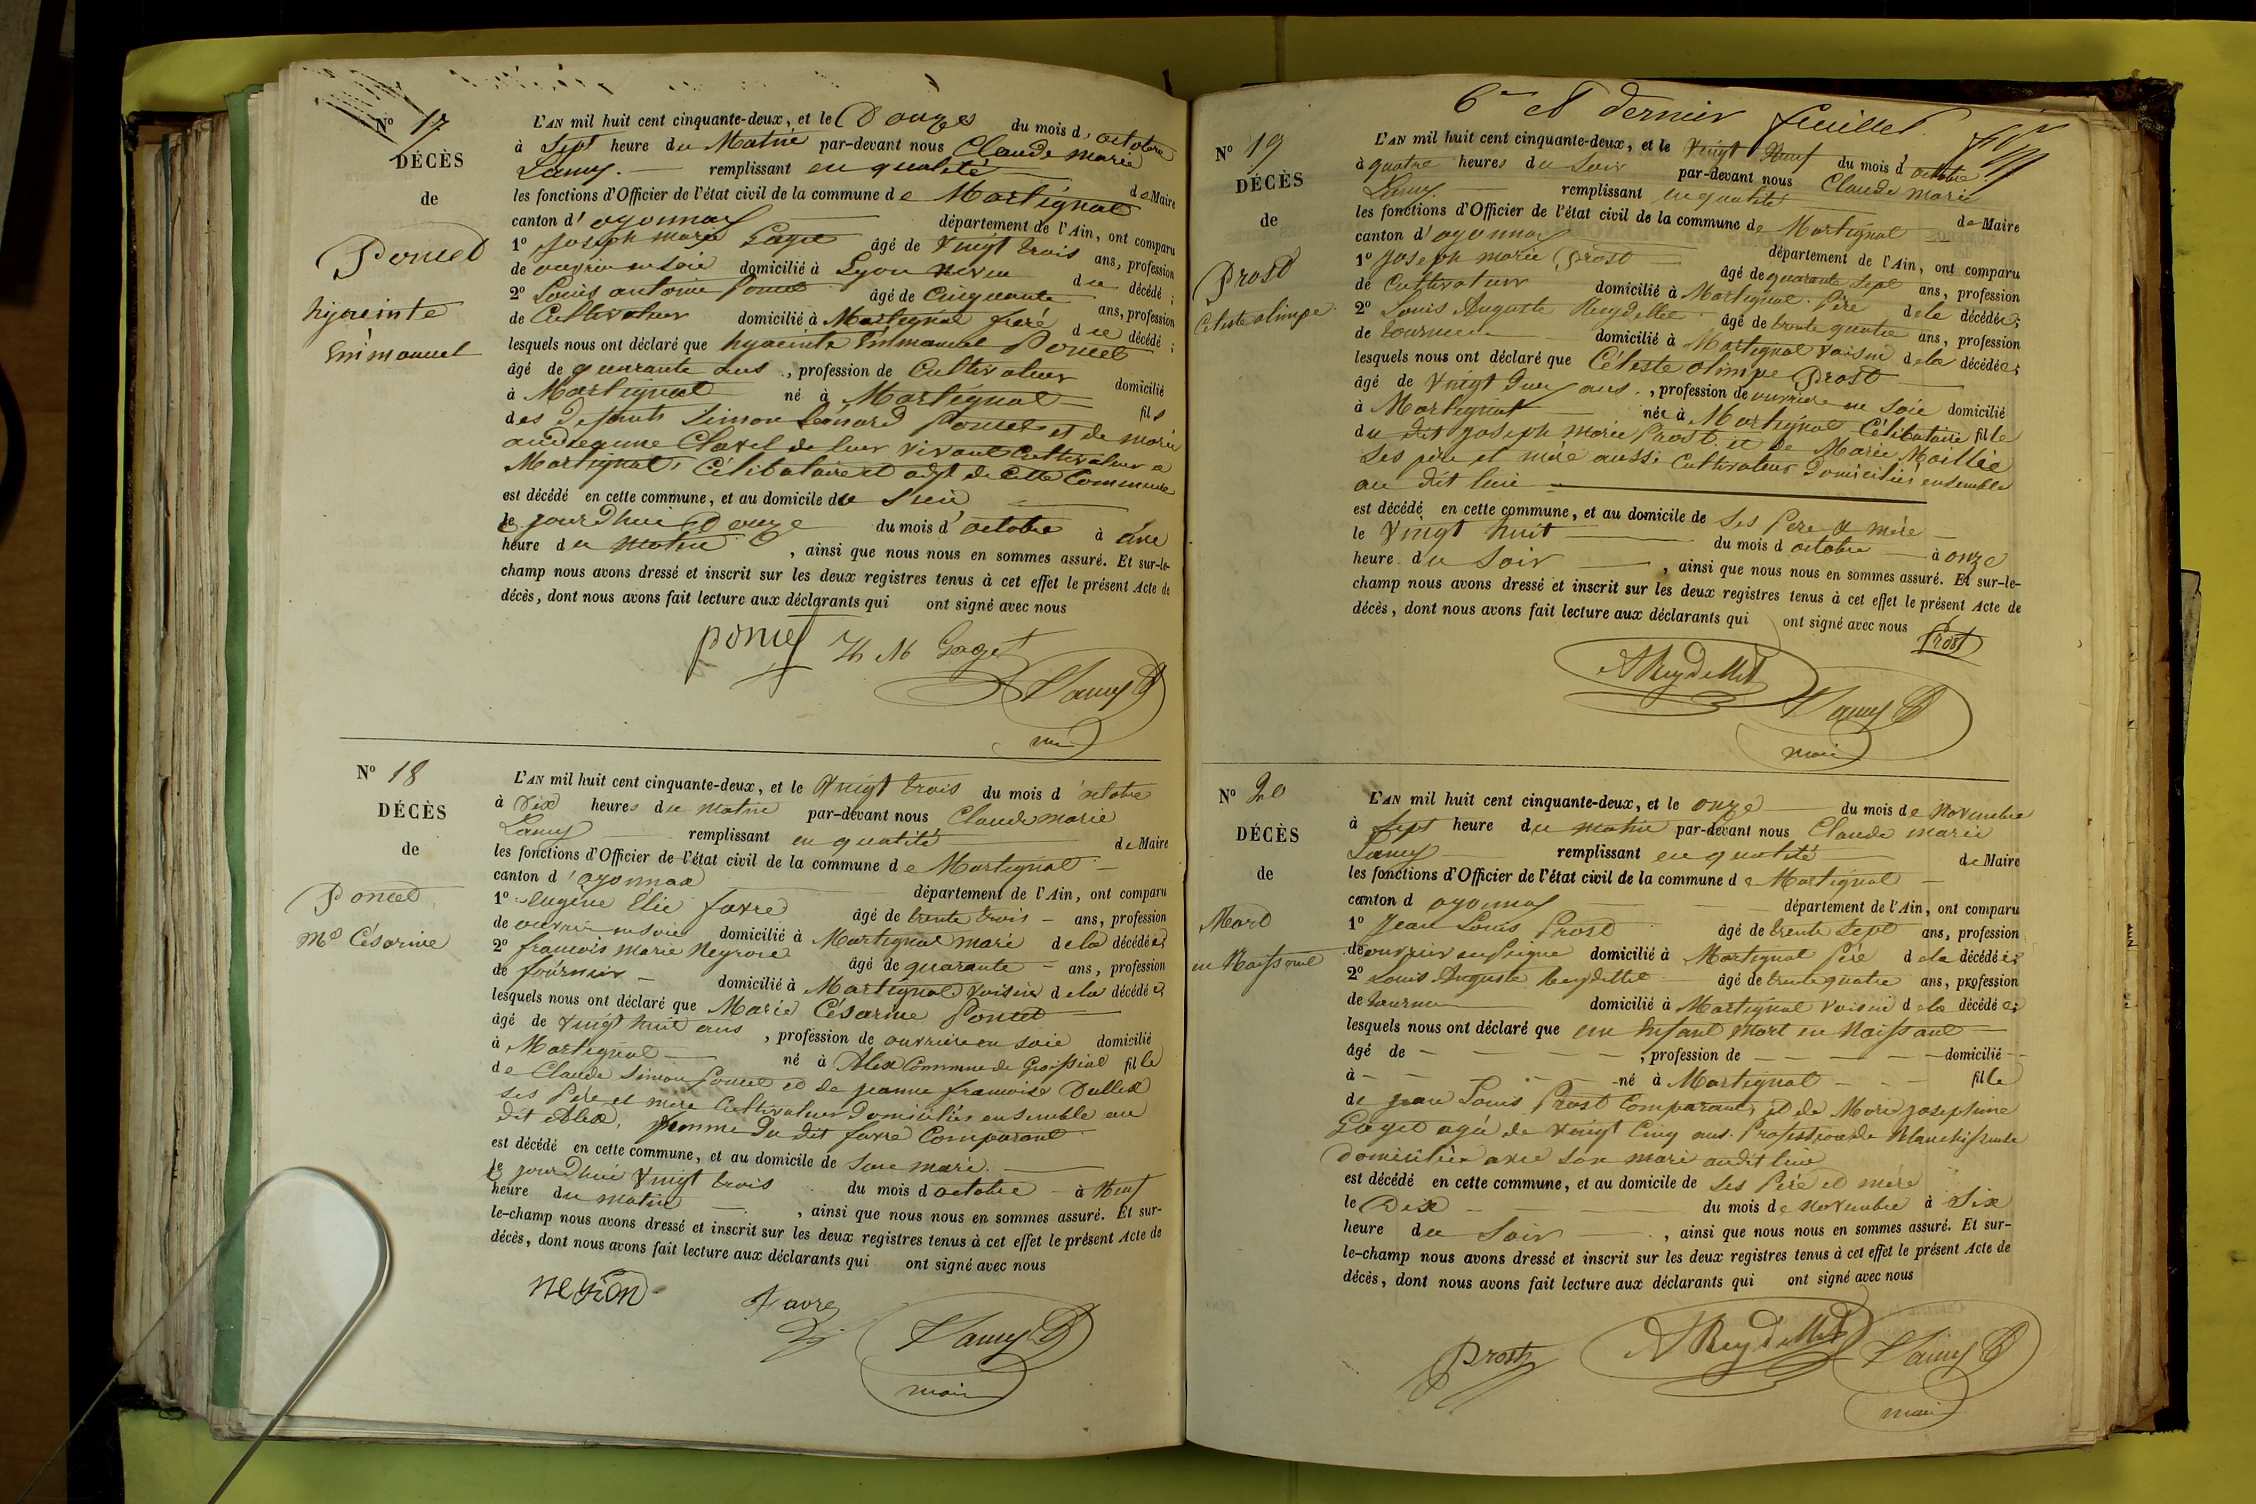 N° 17
DÉCÈS
de
Poncet
hyacinte
Emmanuel
L'AN mil huit cent cinquante-deux, et le Douze du mois d'octobre
à Sept heure du Matin par-devant nous Claude marie
Lamy remplissant en qualité de Maire
les fonctions d'Officier de l'état civil de la commune de Martignat
canton d'oyonnax département de l'Ain, ont comparu
1° Joseph marie Gaget âgé de vingt trois ans, profession
de ouvrier en soie domicilié à Lyon neveu du décédé ;
2° Louis antoine Poncet âgé de Cinquante ans, profession
de Cultivateur domicilié à Martignat frere du décédé ;
lesquels nous ont déclaré que hyacinte Emmanuel Poncet
âgé de quarante ans, profession de Cultivateur domicilié
à Martignat né à Martignat fils
des Defunts Simon Léonard Poncet et de marie
andreanne Clavel de leur vivant Cultivateur a
Martignat, Célibataire et adjt de Cette Commune
est décédé en cette commune, et au domicile du Sien
le jourd'hui Douze du mois d'octobre à une
heure du matin, ainsi que nous nous en sommes assuré. Et sur-le-
champ nous avons dressé et inscrit sur les deux registres tenus à cet effet le présent Acte de
décès, dont nous avons fait lecture aux déclarants qui ont signé avec nous
poncet Jh M Gaget
Lamy
N° 18
DÉCÈS
de
Poncet
Me Césarine
L'AN mil huit cent cinquante-deux, et le vingt trois du mois d'octobre
à Dix heures du matin par-devant nous Claude marie
Lamy remplissant en qualité de Maire
les fonctions d'Officier de l'état civil de la commune de Martignat
canton d'oyonnax département de l'Ain, ont comparu
1° Eugène Élie favre âgé de trente trois ans, profession
de ouvrier en soie domicilié à Martignat mari de la décédée;
2° francois marie Neyron âgé de quarante ans, profession
de fournier domicilié à Martignat voisin de la décédée;
lesquels nous ont déclaré que Marie Césarine Poncet
âgé de vingt huit ans, profession de ouvriere en soie domicilié
à Martignat né à Alex Commune de Groissiat fille
de Claude Simon Poncet et de jeanne francoise Dallex
ses Père et mere Cultivateur Domiciliés ensemble au
dit Alex, femme du dit favre Comparant
est décédé en cette commune, et au domicile de Son mari
le jourd'hui vingt trois du mois d'octobre à Neuf
heure du matin, ainsi que nous nous en sommes assuré. Et sur-
le-champ nous avons dressé et inscrit sur les deux registres tenus à cet effet le présent Acte de
décès, dont nous avons fait lecture aux déclarants qui ont signé avec nous
neyron favre
Lamy
maire
6e et dernier feuillet
N° 19
DÉCÈS
de
Prost
Céleste olimpe
L'AN mil huit cent cinquante-deux, et le vingt Neuf du mois d'octobre
à quatre heures du Soir par-devant nous Claude marie
Lamy remplissant en qualité de Maire
les fonctions d'Officier de l'état civil de la commune de Martignat
canton d'oyonnax département de l'Ain, ont comparu
1° Joseph marie Prost âgé de quarante Sept ans, profession
de Cultivateur domicilié à Martignat Père de la décédée;
2° Louis Auguste Reydellet âgé de trente quatre ans, profession
de tourneur domicilié à Martignat voisin de la décédée;
lesquels nous ont déclaré que Céleste olimpe Prost
âgé de vingt Deux ans, profession de ouvriere en soie domicilié
à Martignat née à Martignat Célibataire fille
du dit Joseph Marie Prost et de Marie Maillée
Ses père et mère aussi Cultivateur Domiciliés ensemble
au dit lieu
est décédé en cette commune, et au domicile de Ses Père & mère
le vingt huit du mois d octobre à onze
heure du Soir, ainsi que nous nous en sommes assuré. Et sur-le-
champ nous avons dressé et inscrit sur les deux registres tenus à cet effet le présent Acte de
décès, dont nous avons fait lecture aux déclarants qui ont signé avec nous
Prost
A Reydellet
Lamy
maire
N° 20
DÉCÈS
de
Mort
en Naissant
L'AN mil huit cent cinquante-deux, et le onze du mois de Novembre
à Sept heure du matin par-devant nous Claude marie
Lamy remplissant en qualité de Maire
les fonctions d'Officier de l'état civil de la commune de Martignat
canton d oyonnax département de l'Ain, ont comparu
1° Jean Louis Prost âgé de trente Sept ans, profession
de ouvrier en peigne domicilié à Martignat Père de la décédée;
2° Louis Auguste Reydellet âgé de trente quatre ans, profession
de tourneur domicilié à Martignat voisin de la décédée;
lesquels nous ont déclaré que un Enfant Mort en Naissant
âgé de , profession de domicilié
à né à Martignat fille
de jean Louis Prost Comparant, et de Marie josephine
Gaget agée de vingt Cinq ans. Profession de Blanchisseuse
Domiciliée avec Son mari audit lieu
est décédé en cette commune, et au domicile de Ses Père et mère
le Dix du mois de Novembre à Six
heure du Soir, ainsi que nous nous en sommes assuré. Et sur-
le-champ nous avons dressé et inscrit sur les deux registres tenus à cet effet le présent Acte de
décès, dont nous avons fait lecture aux déclarants qui ont signé avec nous
Prost A Reydellet Lamy
maire